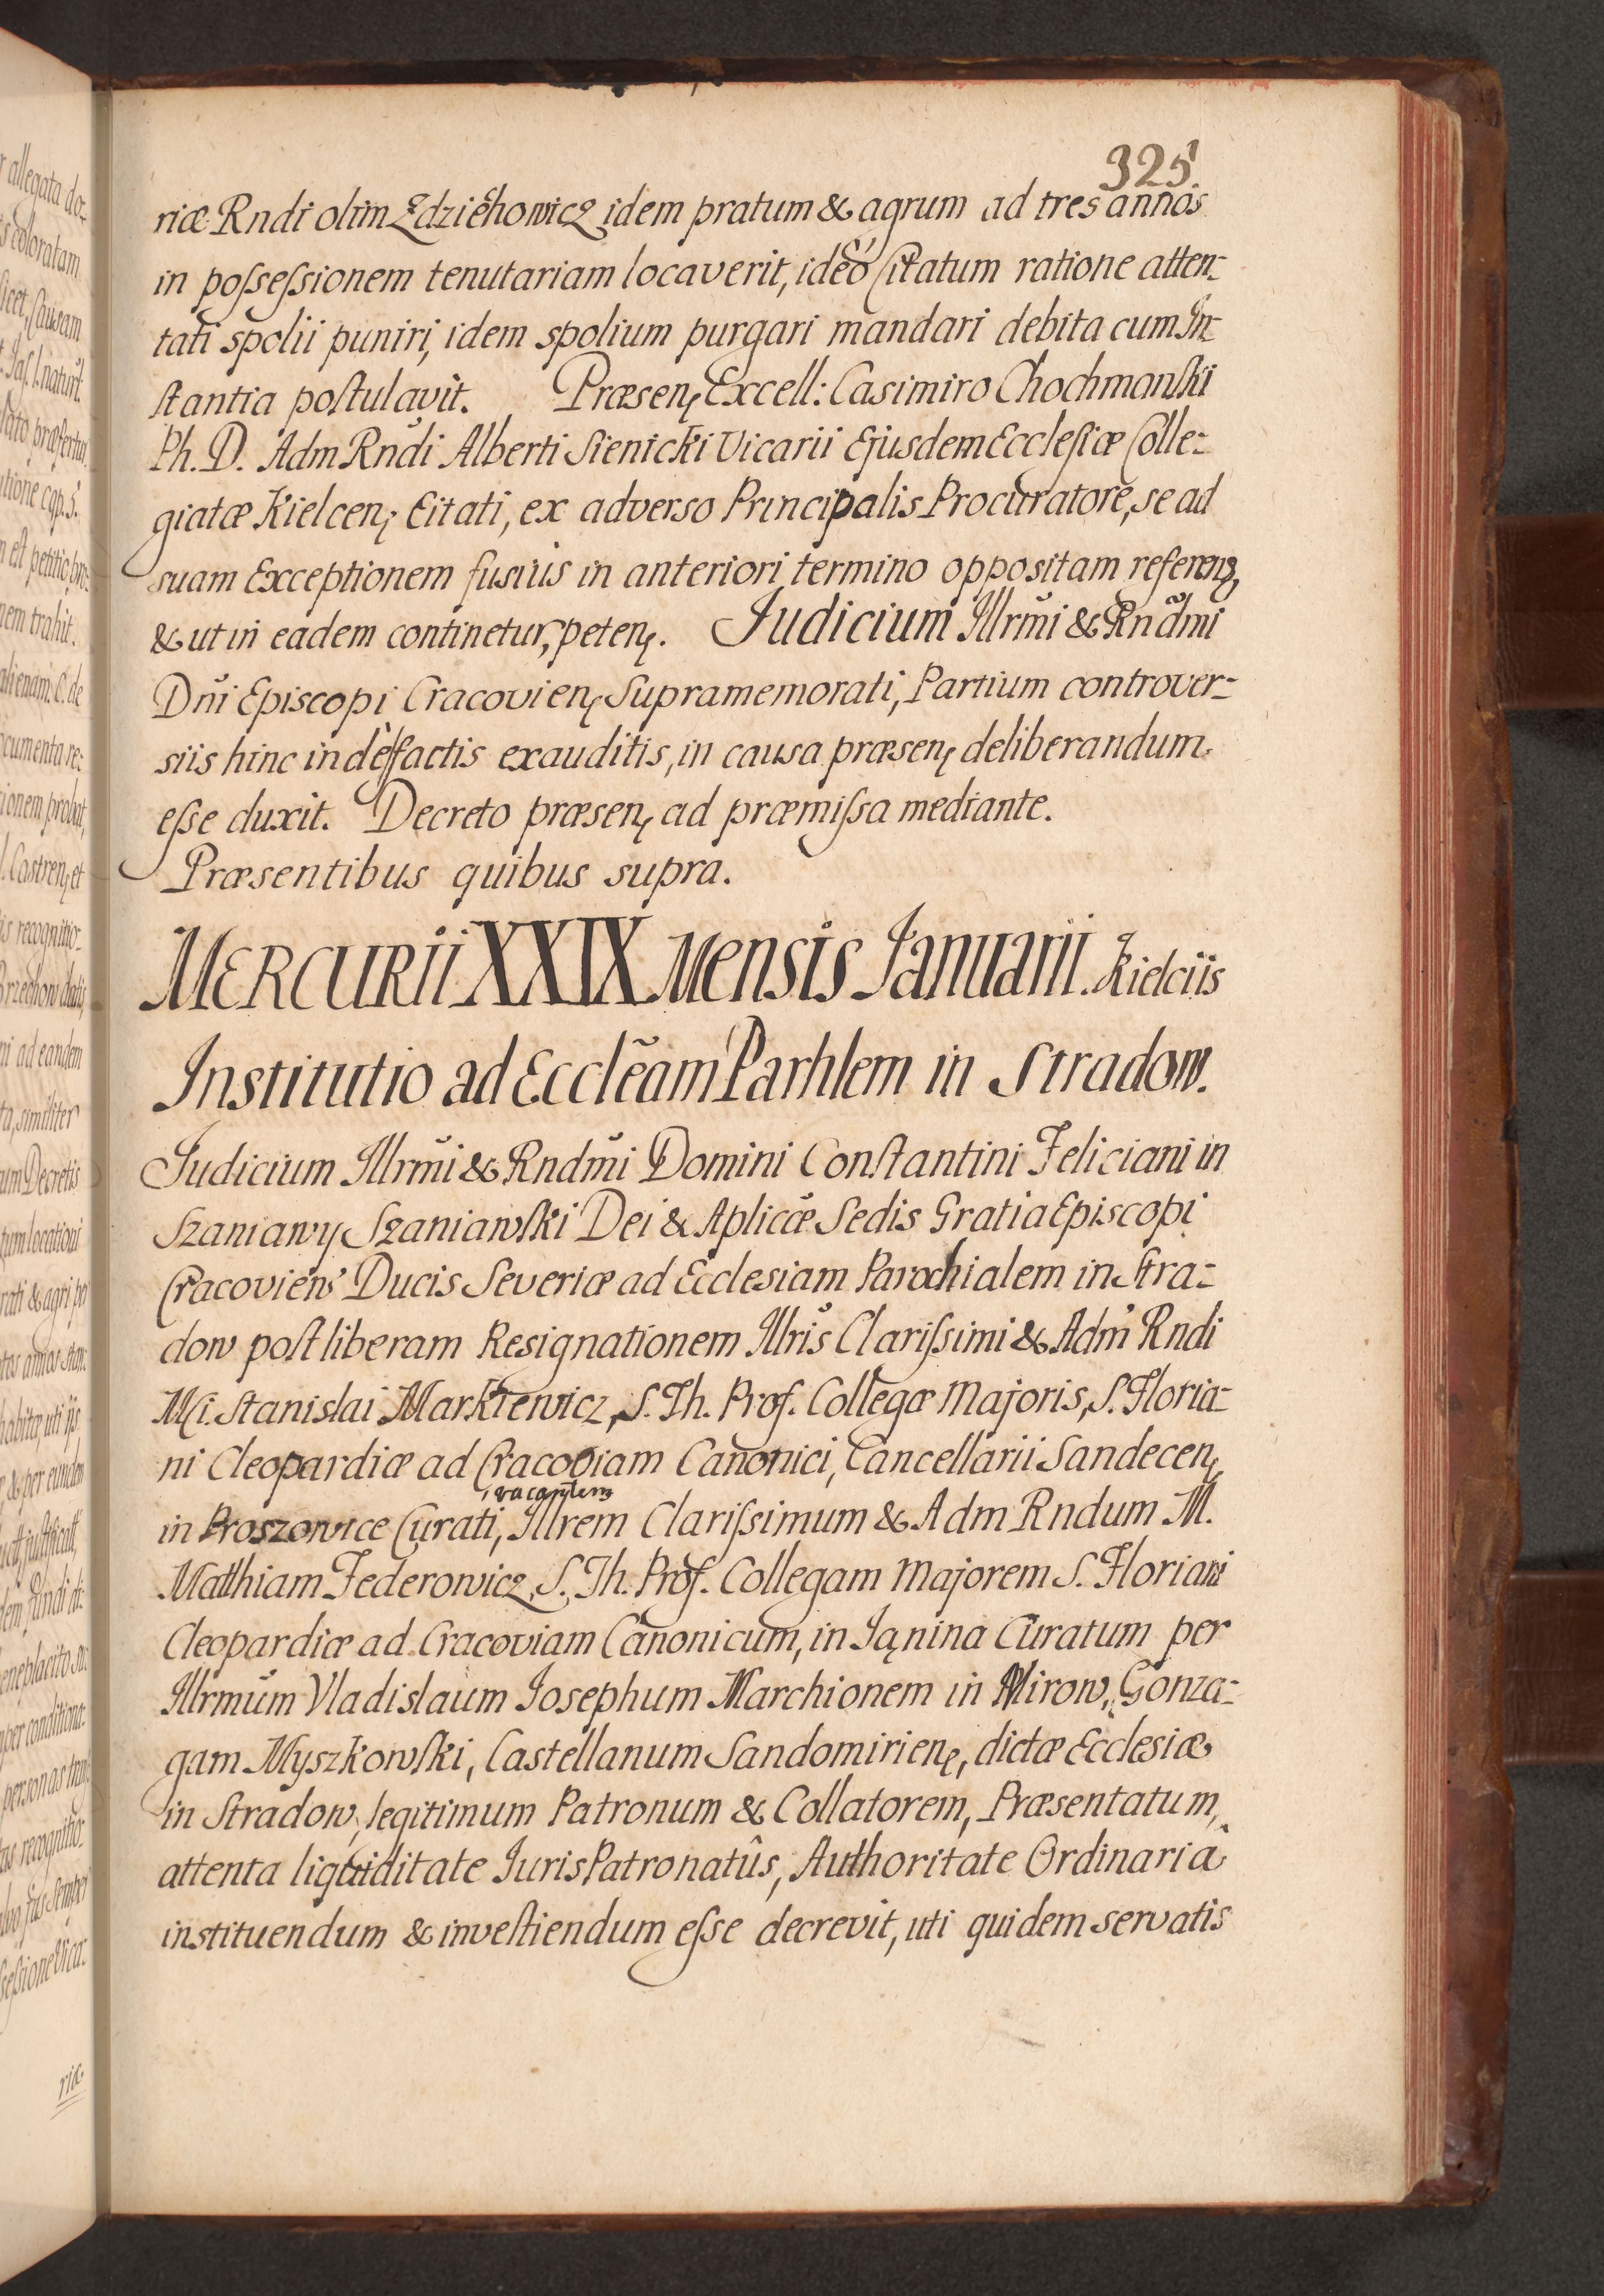 325
riæ Rndi olim Zdziehowicz idem pratum & agrum ad tres annos
in possessionem tenutariam locaverit, ideò Citatum ratione atten-
tati spolii puniri, idem spolium purgari mandari debita cum In-
stantia postulavit. Præsen: Excell: Casimiro Chochmanski
Ph. D. Adm Rndi Alberti Sienicki Vicarii Ejusdem Ecclesiæ Colle-
giatæ Kielcen: Citati, ex adverso Principalis Procuratore, se ad
suam Exceptionem fusius in anteriori termino oppositam referens,
& ut in eadem continetur, peten:. Judicium Illrm̃i & Rndm̃i
Dñi Episcopi Cracovien: Supramemorati, Partium controver-
siis hinc inde factis exauditis, in causa præsen: deliberandum
esse duxit. Decreto præsen: ad præmissa mediante.
Præsentibus quibus supra.
MERCURii XXIX Mensis Januarii. Kielciis
Institutio ad Ecclẽam Parhlem in Stradow.
Judicium Illrm̃i & Rndm̃i Domini Constantini Feliciani in
Szaniawy Szaniawski Dei & Aplicæ Sedis Gratia Episcopi
Cracovien' Ducis Severiæ ad Ecclesiam Parochialem in Stra-
dow post liberam Resignationem Illris Clarissimi & Adm' Rndi
M. Stanislai Markiewicz, S. Th. Prof. Collegæ Majoris, S. Floria-
ni Cleopardiæ ad Cracoviam Canonici, Cancellarii Sandecen:
in Proszowice Curati, vacantem, Illrem Clarissimum & Adm Rndum M.
Matthiam Federowicz, S. Th. Prof. Collegam Majorem S. Floriani
Cleopardiæ ad Cracoviam Canonicum, in Ianina Curatum per
Illrmũm Vladislaum Josephum Marchionem in Mirow, Gonza-
gam Myszkowski, Castellanum Sandomirien:, dictæ Ecclesiæ
in Stradow, legitimum Patronum & Collatorem, Præsentatum,
attenta liquiditate Juris Patronatûs, Authoritate Ordinaria
instituendum & investiendum esse decrevit, uti quidem servatis